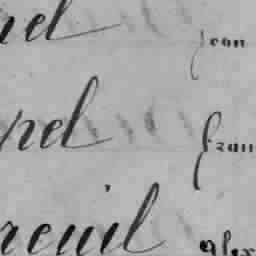 nel Jean
nel Fran
reuil Alex